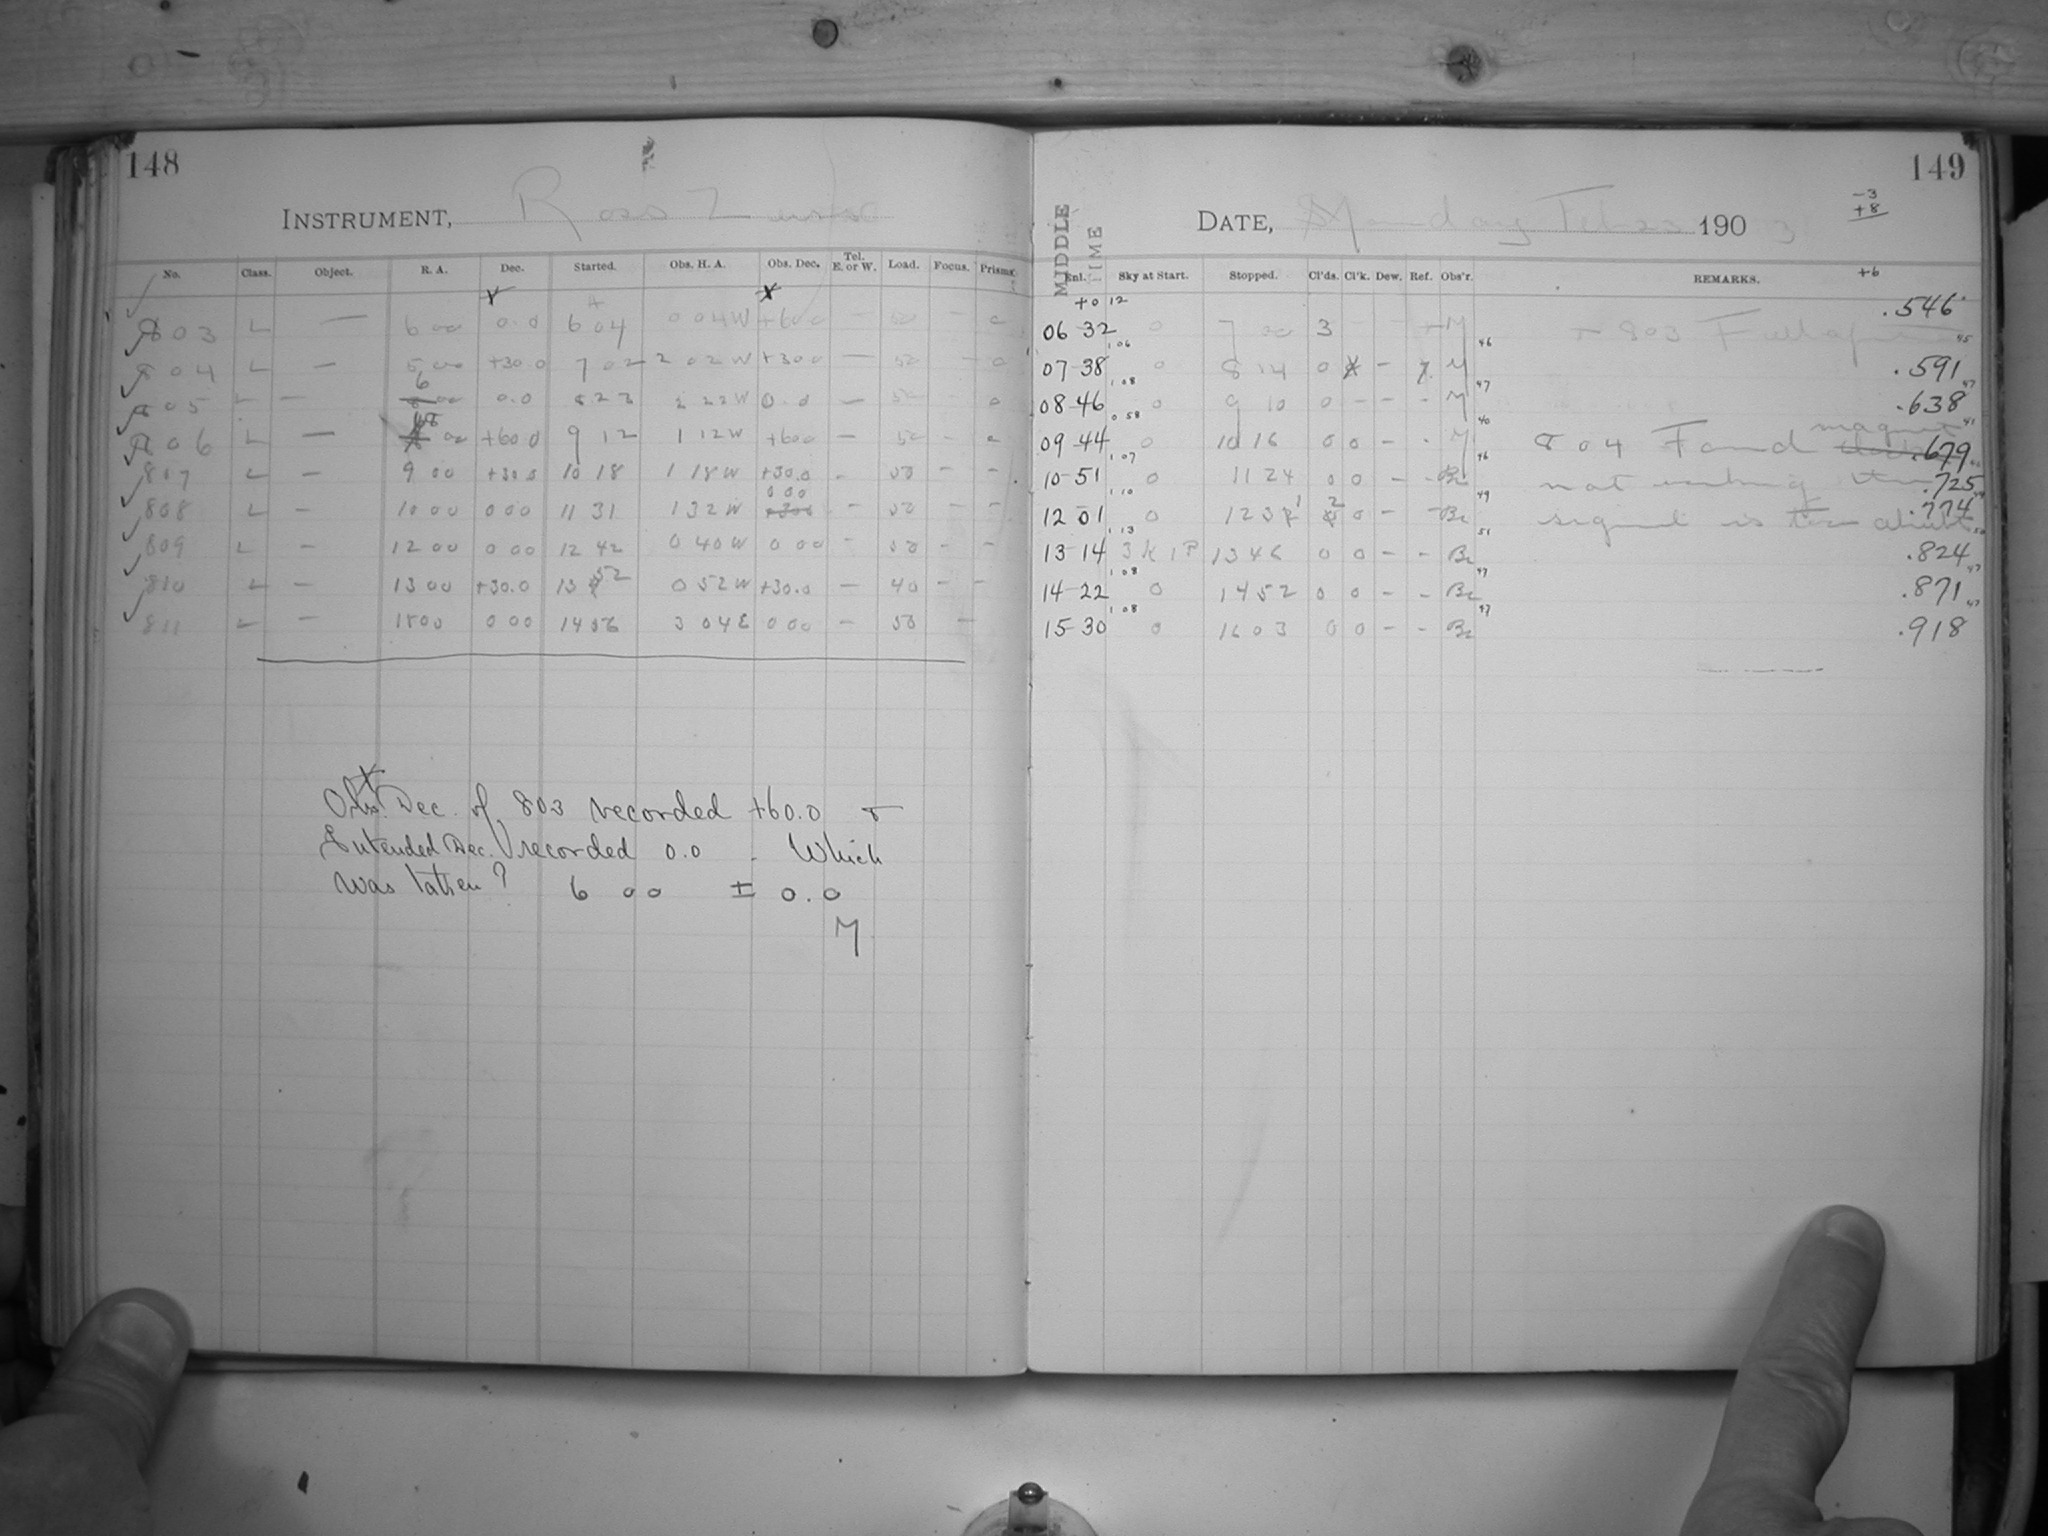 148
INSTRUMENT, Ross
No. Class. Object. R. A. Dec. Started. Obs. H. A. Obs. Dec. Tel. E. or W. Load. Focus. Prisms.
803 L — 6 00 0.0 6 04 0 04 W +60 0 — 50 — 0
804 L — 5 00 +30 0 7 02 2 02 W +30 0 — 50 — 0
805 L — 6 00 0.0 8 23 2 22 W 0.0 — 50 — 0
806 L — 8 00 +60 0 9 12 1 12 W +60 0 — 50 — 0
807 L — 9 00 +30.0 10 18 1 18 W +30.0 — 50 — —
808 L — 10 00 0 00 11 31 1 32 W 0 00 — 50 — —
809 L — 12 00 0 00 12 42 0 40 W 0 00 — 50 — —
810 L — 13 00 +30.0 13 52 0 52 W +30.0 — 40 — —
811 L — 18 00 0 00 14 56 3 04 E 0 00 — 50 —
Obs. Dec. of 803 recorded +60.0
Intended Dec. recorded 0.0 . Which
was taken? 6 00 ± 0.0
M
149
-3
+8
MIDDLE TIME
DATE, Monday Feb 190 3
Enl. Sky at Start. Stopped. Cl'ds. Cl'k. Dew. Ref. Obs'r. REMARKS. +6
+0 12 .546
06-32 0 7 00 3 — — — M 803 Full
1 06 46 45
07-38 0 8 14 0 — M .591
1 08 47 47
08-46 0 9 10 0 — — - M .638
0 58 40 41
09-44 0 10 16 0 0 — - M 804 Found magnet .679
1 07 46
10-51 0 11 24 0 0 — - Bc not working .725
1 10 49 49
12 01 0 12 31 2 0 — — Bc signal is .774
1 13 51
13-14 3 K 1 P 13 46 0 0 — — Bc .824
1 08 47 47
14-22 0 14 52 0 0 — - Bc .871
1 08 47 47
15-30 0 16 03 0 0 — - Bc .918